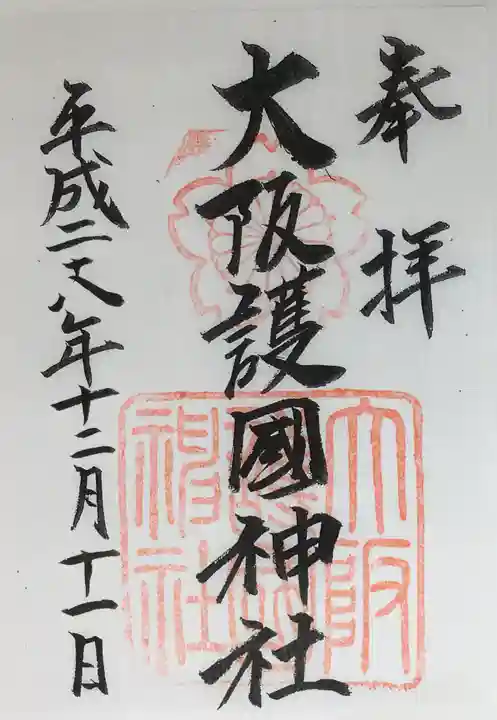 奉拝
大阪護國神社
平成二十八年十二月十一日
大阪護國神社